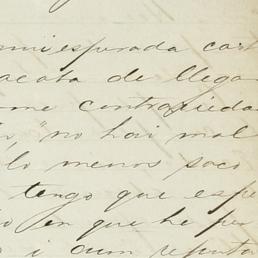 mi esperada cart
acata de llegar
me contrariedad
"no hai mal
lo menos saco
tengo que espe
en que he per
i aun reputa